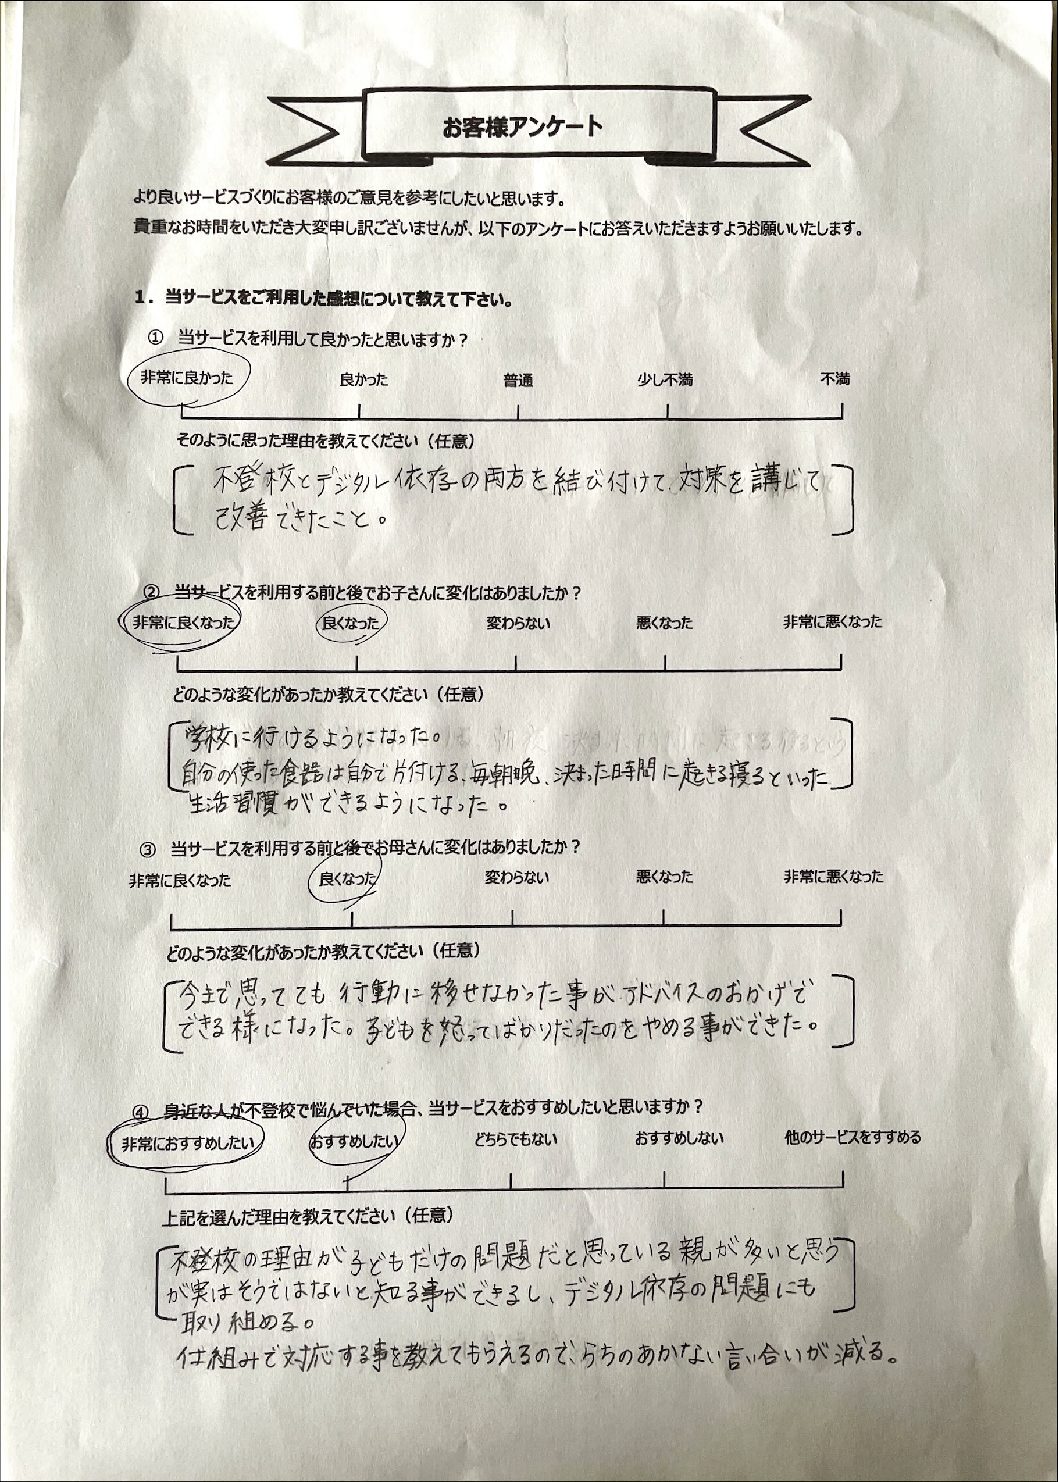 お客様アンケート
より良いサービスづくりにお客様のご意見を参考にしたいと思います。
貴重なお時間をいただき大変申し訳ございませんが、以下のアンケートにお答えいただきますようお願いいたします。
1．当サービスをご利用した感想について教えて下さい。
① 当サービスを利用して良かったと思いますか？
非常に良かった 良かった 普通 少し不満 不満
そのように思った理由を教えてください（任意）
不登校とデジタル依存の両方を結び付けて対策を講じて
改善できたこと。
② 当サービスを利用する前と後でお子さんに変化はありましたか？
非常に良くなった 良くなった 変わらない 悪くなった 非常に悪くなった
どのような変化があったか教えてください（任意）
学校に行けるようになった。
自分の使った食器は自分で片付ける、毎朝晩、決まった時間に起きる寝るといった
生活習慣ができるようになった。
③ 当サービスを利用する前と後でお母さんに変化はありましたか？
非常に良くなった 良くなった 変わらない 悪くなった 非常に悪くなった
どのような変化があったか教えてください（任意）
今まで思ってても行動に移せなかった事がアドバイスのおかげで
できる様になった。子どもを怒ってばかりだったのをやめる事ができた。
④ 身近な人が不登校で悩んでいた場合、当サービスをおすすめしたいと思いますか？
非常におすすめしたい おすすめしたい どちらでもない おすすめしない 他のサービスをすすめる
上記を選んだ理由を教えてください（任意）
不登校の理由が子どもだけの問題だと思っている親が多いと思う
が実はそうではないと知る事ができるし、デジタル依存の問題にも
取り組める。
仕組みで対応する事を教えてもらえるので、らちのあかない言い合いが減る。